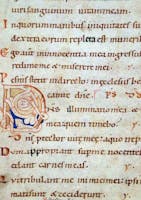 uirisanguinum uitammeam.
Inquorummanibus iniquitatesſu
dexteraeorum repletaest munerib
Ego autē ininnocentia mea ingressuſ
redime me & miserere mei
Pes meus stetit indirecto. ineclesiisbe
cam te dñe
Dñs illuminatio mea &
mea quem timebo
Dñs protector uite mee. aquo trep
Dum appropiant super me nocentes
edant carnes meas
Qui tribulant me inimici mei. ipsi
matisunt & ceciderunt